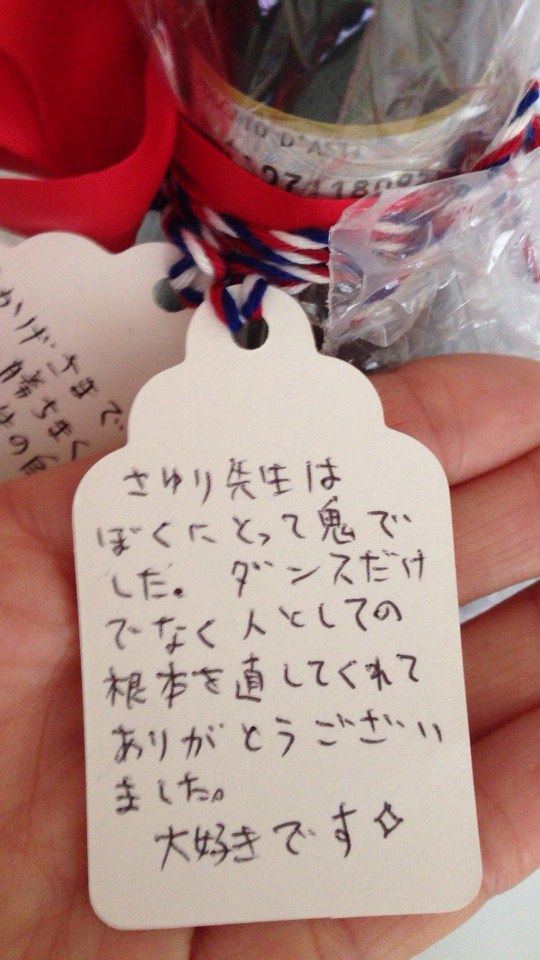 D'ASTI
かげさまで
勝ちまく
さゆり先生は
ぼくにとって鬼で
した。ダンスだけ
でなく人としての
根本を直してくれて
ありがとうござい
ました。
大好きです☆